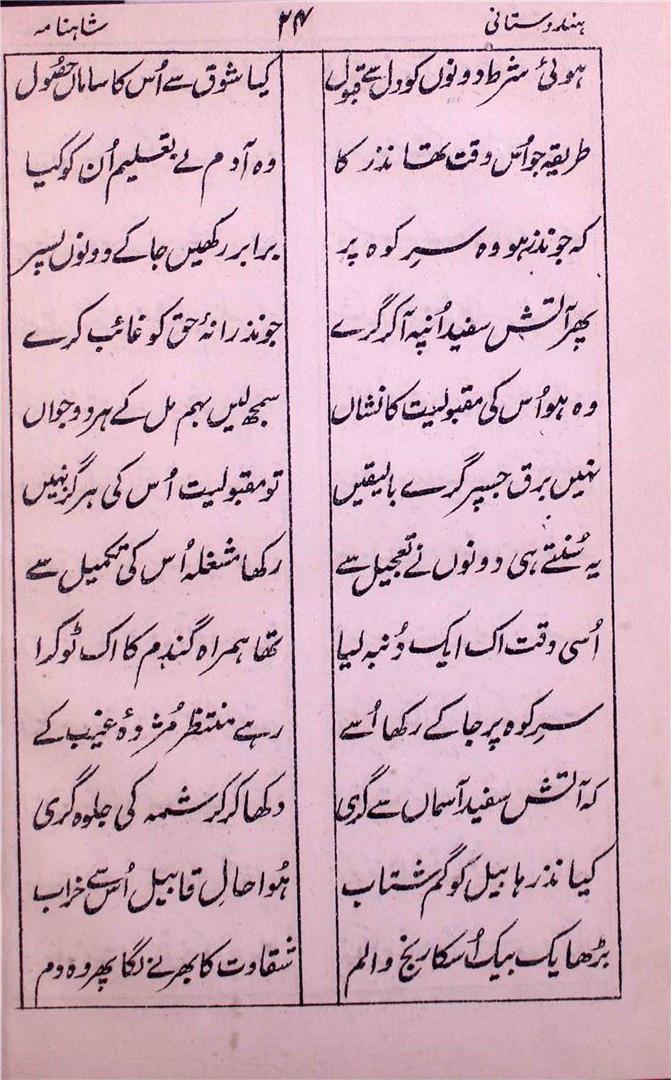 ہندوستانی ۲۴ شاہنامہ
ہوئی شرط دونوں کو دل سے قبول کیا شوق سے اُس کا ساماں حصُول
طریقہ جو اُس وقت تھا نذر کا وہ آدم نے تعلیم اُن کو کیا
کہ جو نذر ہو وہ سرِ کوہ پر برابر رکھیں جا کے دونوں پسپر
پھر آتش سفید اُنپہ آ کر گرے جو نذرانۂ حق کو غائب کرے
وہ ہو اُس کی مقبولیت کا نشاں سمجھ لیں بہم مل کے ہر دو جواں
نہیں برق جسپر گرے بالیقیں تو مقبولیت اُس کی ہرگز نہیں
یہ سُنتے ہی دونوں نے تعجیل سے رکھا مشغلہ اُس کی تکمیل سے
اُسی وقت اک ایک دُنبہ لیا تھا ہمراہ گندم کا اک ٹوکرا
سرِ کوہ پر جا کے رکھا اُسے رہے منتظر مُژدۂ غیب کے
کہ آتش سفید آسماں سے گری دکھا کر کرشمہ کی جلوہ گری
کیا نذر ہابیل کو گم شتاب ہُوا حالِ قابیل اُس سے خراب
بڑھا یک بیک اُسکا رنج و الم شقاوت کا بھرنے لگا پھر وہ دم